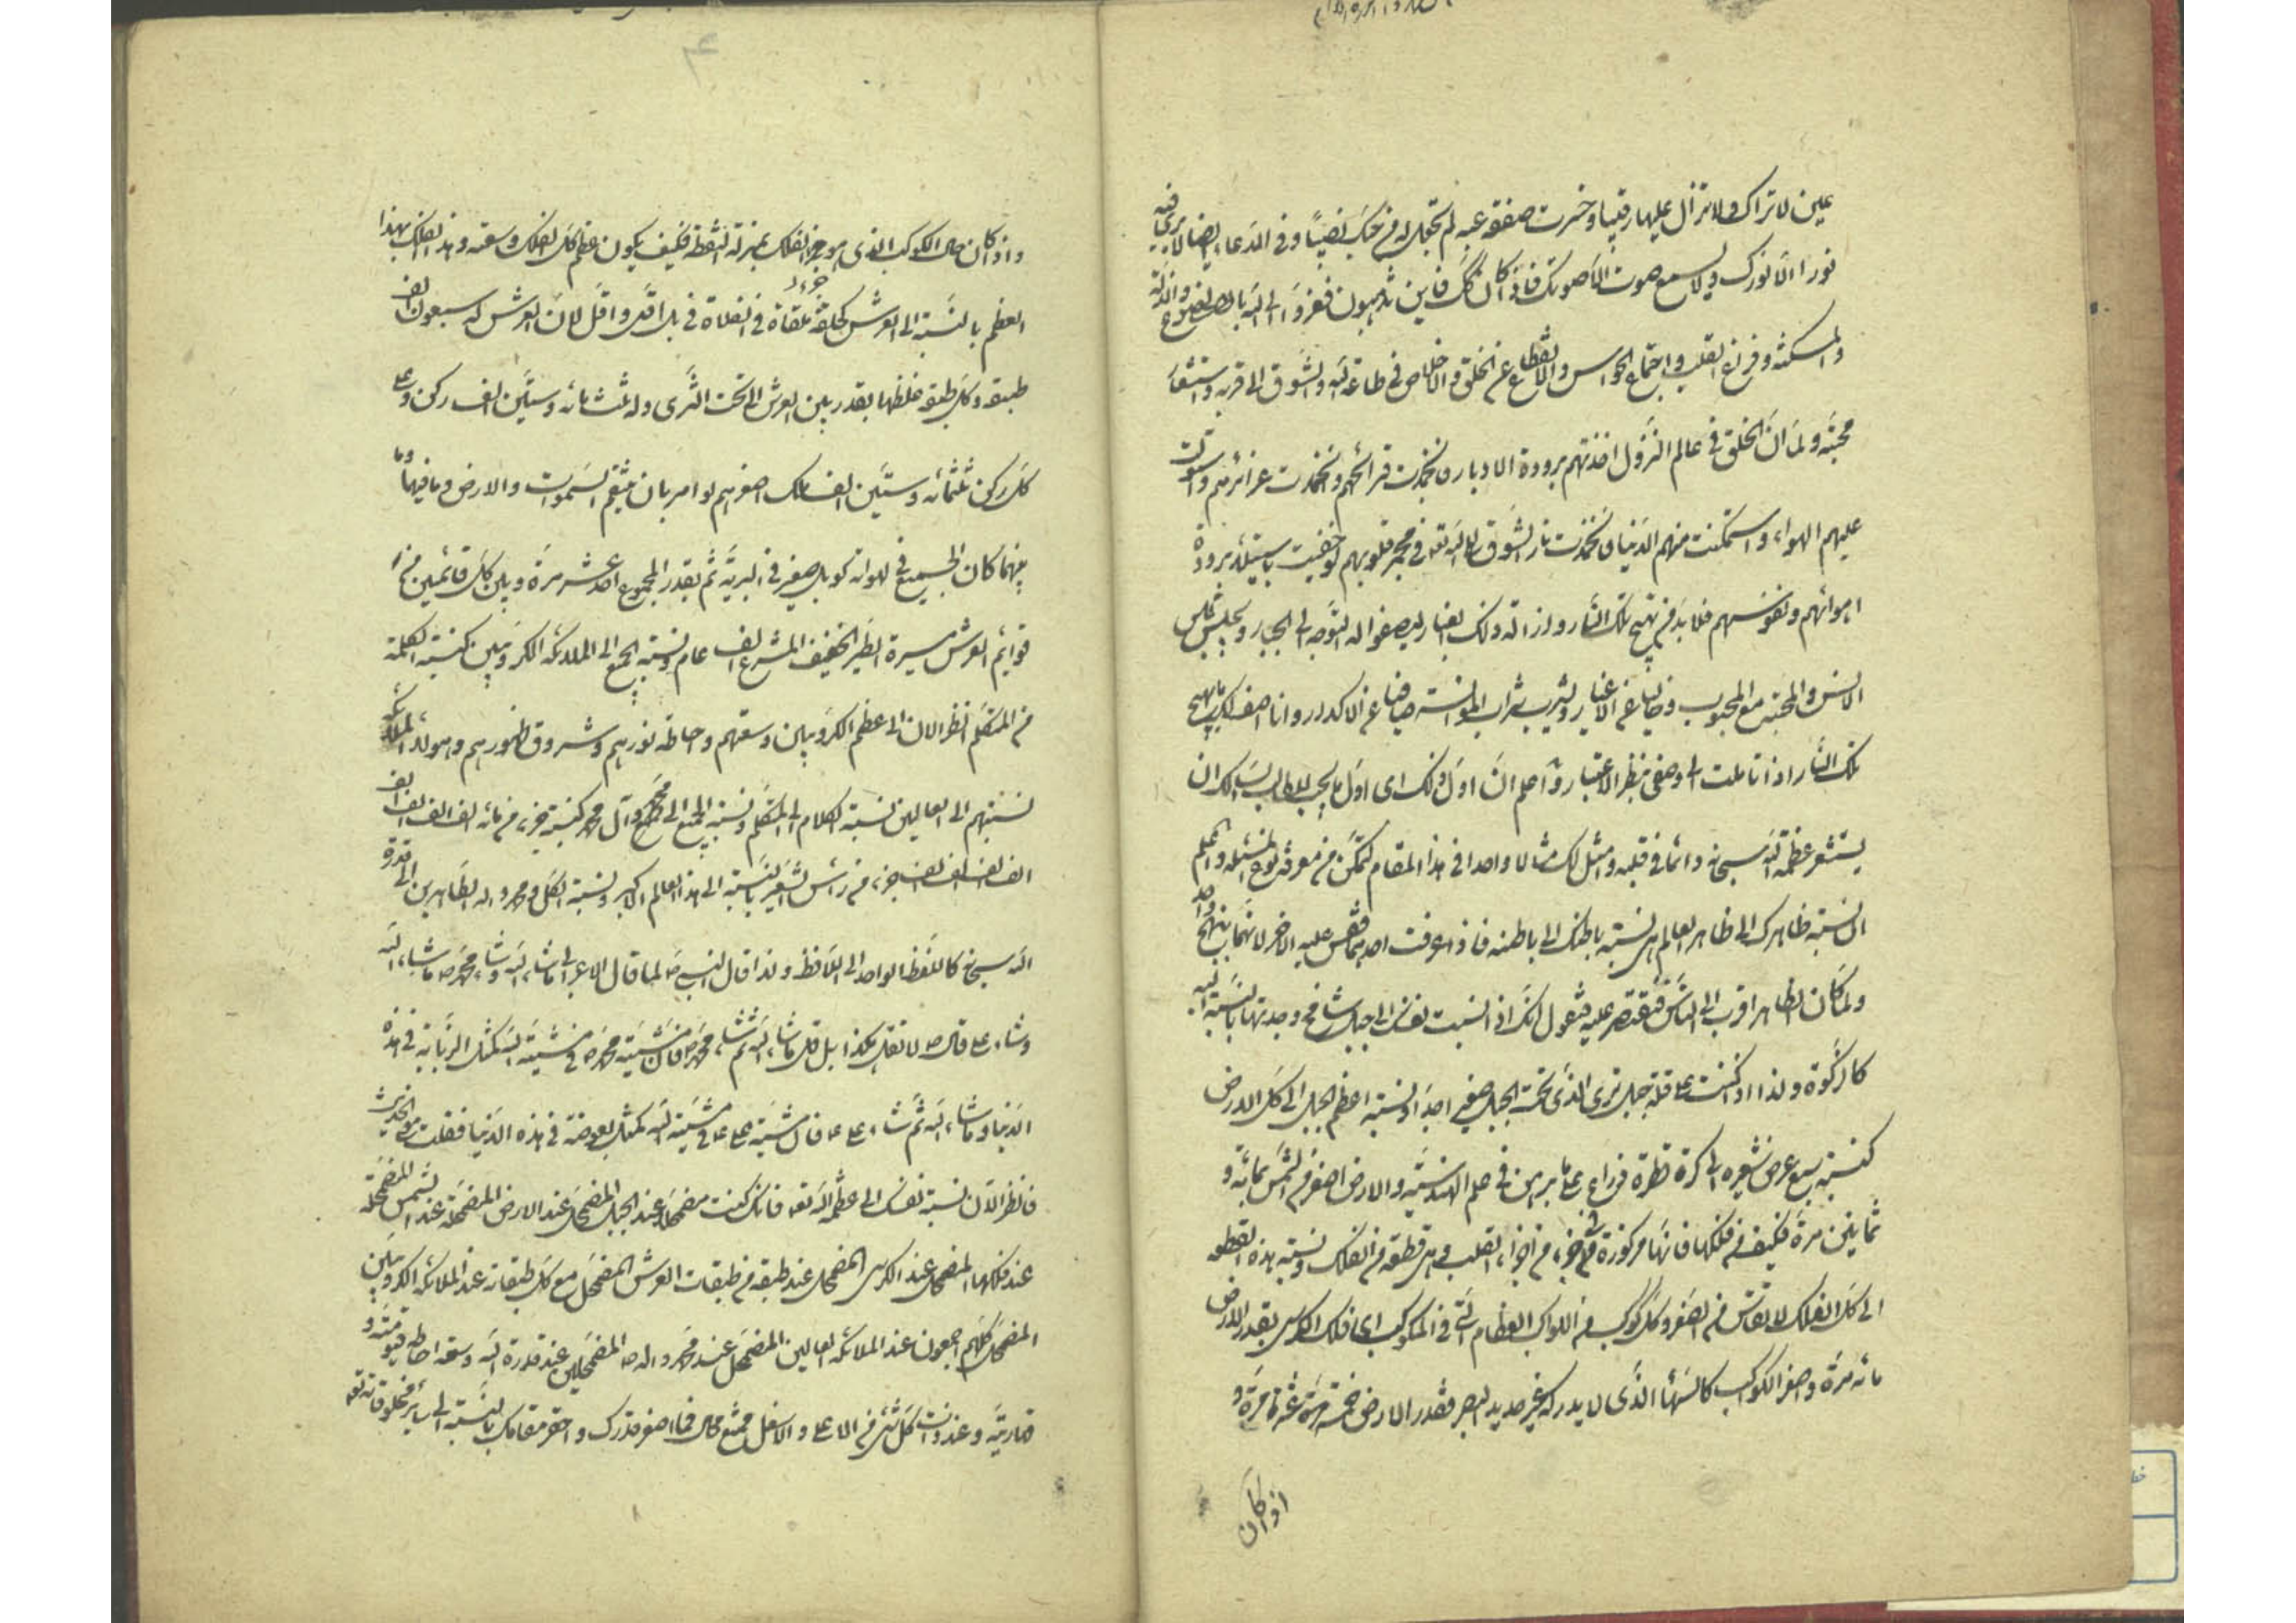 عين لا تراك ولا تزال عليها رقيبا وخسرت صفقة عبد لم تجعل له من حبك نصيبًا وفى الدعاء ايضا لا يرى فيه
نورا الا نورك ولا يسمع صوت الا صوتك فاذا كان كك فاين تذهبون ففروا الى الله بالخضوع والذلة
والمسكنة وفراغ القلب واجتماع الحواس والانقطاع عن الخلق والاخلاص فى طاعة الله والشوق الى قربه واستشعار
محبته ولما ان الخلق فى عالم النزول اخذتهم برودة الادبار فانجمدت قرائحهم وانخمدت غرائزهم واستولت
عليهم الهواء واستمكنت منهم الدنيا فانخمدت نار الشوق الى الله تعالى فى مجمر قلوبهم او خفيت باستيلاء برودة
اهوائهم ونفوسهم فلا بد من تهيج تلك النار وازالة ذلك الغبار ليصفوا له التوجه الى الجبار ويجلس مجلس
الانس والمحبة مع المحبوب خاليا عن الاغيار ويشرب شراب الموانسة صافيا عن الاكدار وانا اصف لك ما يهيج
تلك النار اذا تاملت الى وصفى بنظر الاعتبار واعلم ان اول ذلك اى اول ما يجب للطالب السالك ان
يستشعر عظمة الله سبحانه دائما فى قلبه وامثل لك مثالا واحدا فى هذا المقام لتتمكن من معرفة نوع المسئلة واعلم
ان نسبة ظاهرك الى ظاهر العالم هى نسبة باطنك الى باطنه فاذا عرفت احدهما فقس عليه الاخر لانهما بنهج واحد
ولما كان الظاهر اقرب الى الناس فنقتصر عليه فنقول انك اذا نسبت نفسك الى جبل شامخ وجدتها بالنسبة اليه
كالذرة ولذا اذا كنت على قلة جبل ترى الذى تحت الجبل صغيرا جدا ونسبة اعظم الجبال الى كل الارض
كنسبة سبع عرض شعيره الى كرة قطرها ذراع على ما برهن فى علم الهندسة والارض اصغر من الشمس بمائة و
ثمانين مرة فكيف من فلكها فانها مركوزة فى جزء من اجزاء القلب وهى قطعة من الفلك ونسبة هذه القطعة
الى كل الفلك لا تقاس من الصغر وكل كوكب من الكواكب العظام التى فى المكوكب اى فلك الكرسى بقدر الارض
مائة مرة واصغر الكواكب كالسها الذى لا يدركه غير حديد البصر فقدر الارض خمسة عشر مرة و
اذا كان
واذا كان حال الكوكب الذى هو جزء الفلك بمنزلة النقطة فكيف يكون عظم كل الفلك وسعته وهذا الفلك بهذا
العظم بالنسبة الى العرش كحلقة ملقاة فى الفلاة فى بل اقل واقل لان العرش له سبعون الف
طبقة وكل طبقة غلظها بقدر ما بين العرش الى تحت الثرى وله ثلثمائه وستين الف ركن وعلى
كل ركن ثلثمائه وستين الف ملك اصغرهم لو امر بان يلتقم السموات والارض وما فيهما وما
بينهما كان الجميع فى لهواته كرمل صغير فى البرية ثم بقدر المجموع احد عشر مرة وبين كل قائمين من
قوايم العرش مسيرة الطير الخفيف المسرع الف عام ونسبة الجميع الى الملائكة الكروبيين كنسبة الكلمة
من المتكلم انظر الان الى عظم الكروبيين وسعتهم واحاطة نورهم وشروق ظهورهم وهولاء الملائكة
نسبتهم الى العالين نسبة الكلام الى المتكلم ونسبة الجميع الى محمد وآل محمد كنسبة جزء من مائه الف الف الف الف
الف الف الف الف جزء من رأس الشعير بالنسبة الى هذا العالم الاكبر ونسبة الكل ومحمد واله الطاهرين الى قدرة
الله سبحانه كاللفظ الواحد الى اللافظ ولذا قال النبى ص لما قال الاعرابى ما شاء الله وشاء محمد ص ما شاء الله
وشاء على قال ص لا تقل هكذا بل قل ما شاء الله ثم شاء محمد ص فان مشية محمد ص فى مشية الله كمثل الذبابة فى هذه
الدنيا وما شاء الله ثم شاء على ع فان مشية على ع فى مشية الله كمثل بعوضة فى هذه الدنيا فقلت معنى الحديث
فانظر الان نسبة نفسك الى عظمة الله تعالى فانك كنت مضمحلا عند الجبل المضمحل عند الارض المضمحلة عند الشمس المضمحلة
عند فلكها المضمحل عند الكرسى المضمحل عند طبقة من طبقات العرش المضمحل مع كل طبقاته عند الملائكة الكروبيين
المضمحل كلهم اجمعون عند الملائكة العالين المضمحل عند محمد واله ص المضمحلين عند قدرة الله وسعة احاطة قيوميته و
قهاريته وعند ذات كل شئ من الاعلى والاسفل ممتنع محال فما اصغر قدرك واحقر مقامك بالنسبة الى ساير مخلوقاته تعالى